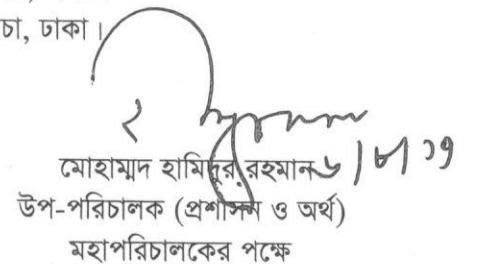 চা, ঢাকা।
মোহাম্মদ হামিদুর রহমান ৬/৮/১৭
উপ-পরিচালক (প্রশাসন ও অর্থ)
মহাপরিচালকের পক্ষে